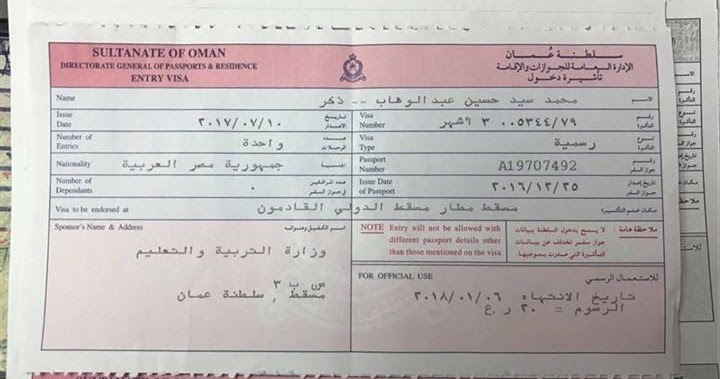 SULTANATE OF OMAN
سلطنة عُمان
DIRECTORATE GENERAL OF PASSPORTS & RESIDENCE
الإدارة العامة للجوازات والإقامة
ENTRY VISA
تأشيرة دخول
Name محمد سيد حسين عبدالوهاب -- ذكر الاسم
Issue Date ٢٠١٧/٠٧/١٠ تاريخ الاصدار
Visa Number ٠٠٥٣٤٤/٧٩ ٣ اشهر رقم التأشيرة
Number of Entries واحدة عدد الرحلات
Visa Type رسمية نوع التأشيرة
Nationality جمهورية مصر العربية
Passport Number A19707492 رقم جواز السفر
Number of Dependants ٠ عدد المرافقين في جواز السفر
Issue Date of Passport ٢٠١٦/١٢/٢٥ تاريخ إصدار جواز السفر
Visa to be endorsed at مسقط مطار مسقط الدولي القادمون مكان ختم التأشيرة
Sponsor's Name & Address اسم الكفيل وعنوانه
وزارة التربية والتعليم
ص ب ٣
مسقط , سلطنة عمان
NOTE Entry will not be allowed with
different passport details other
than those mentioned on the visa
ملاحظة هامة : لا يسمح بدخول السلطنة ببيانات
جواز سفر تختلف عن بيانات
التأشيرة التي صدرت بموجبها
FOR OFFICIAL USE للاستعمال الرسمي
تاريخ الانتهاء ٢٠١٨/٠١/٠٦
الرسوم = ٢٠ ر.ع